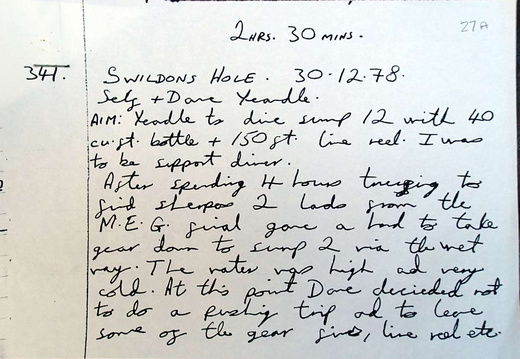 27A
2 HRS. 30 MINS.
341. SWILDONS HOLE. 30.12.78.
Self + Dave Yeandle.
AIM: Yeandle to dive sump 12 with 40
cu.ft. bottle + 150 ft. line reel. I was
to be support diver.
After spending 4 hours trying to
find sherpas 2 lads from the
M.E.G. finaly gave a hand to take
gear down to sump 2 via the wet
way. The water was high and very
cold. At this point Dave decieded not
to do a pushing trip and to leave
some of the gear fins, line reel etc.